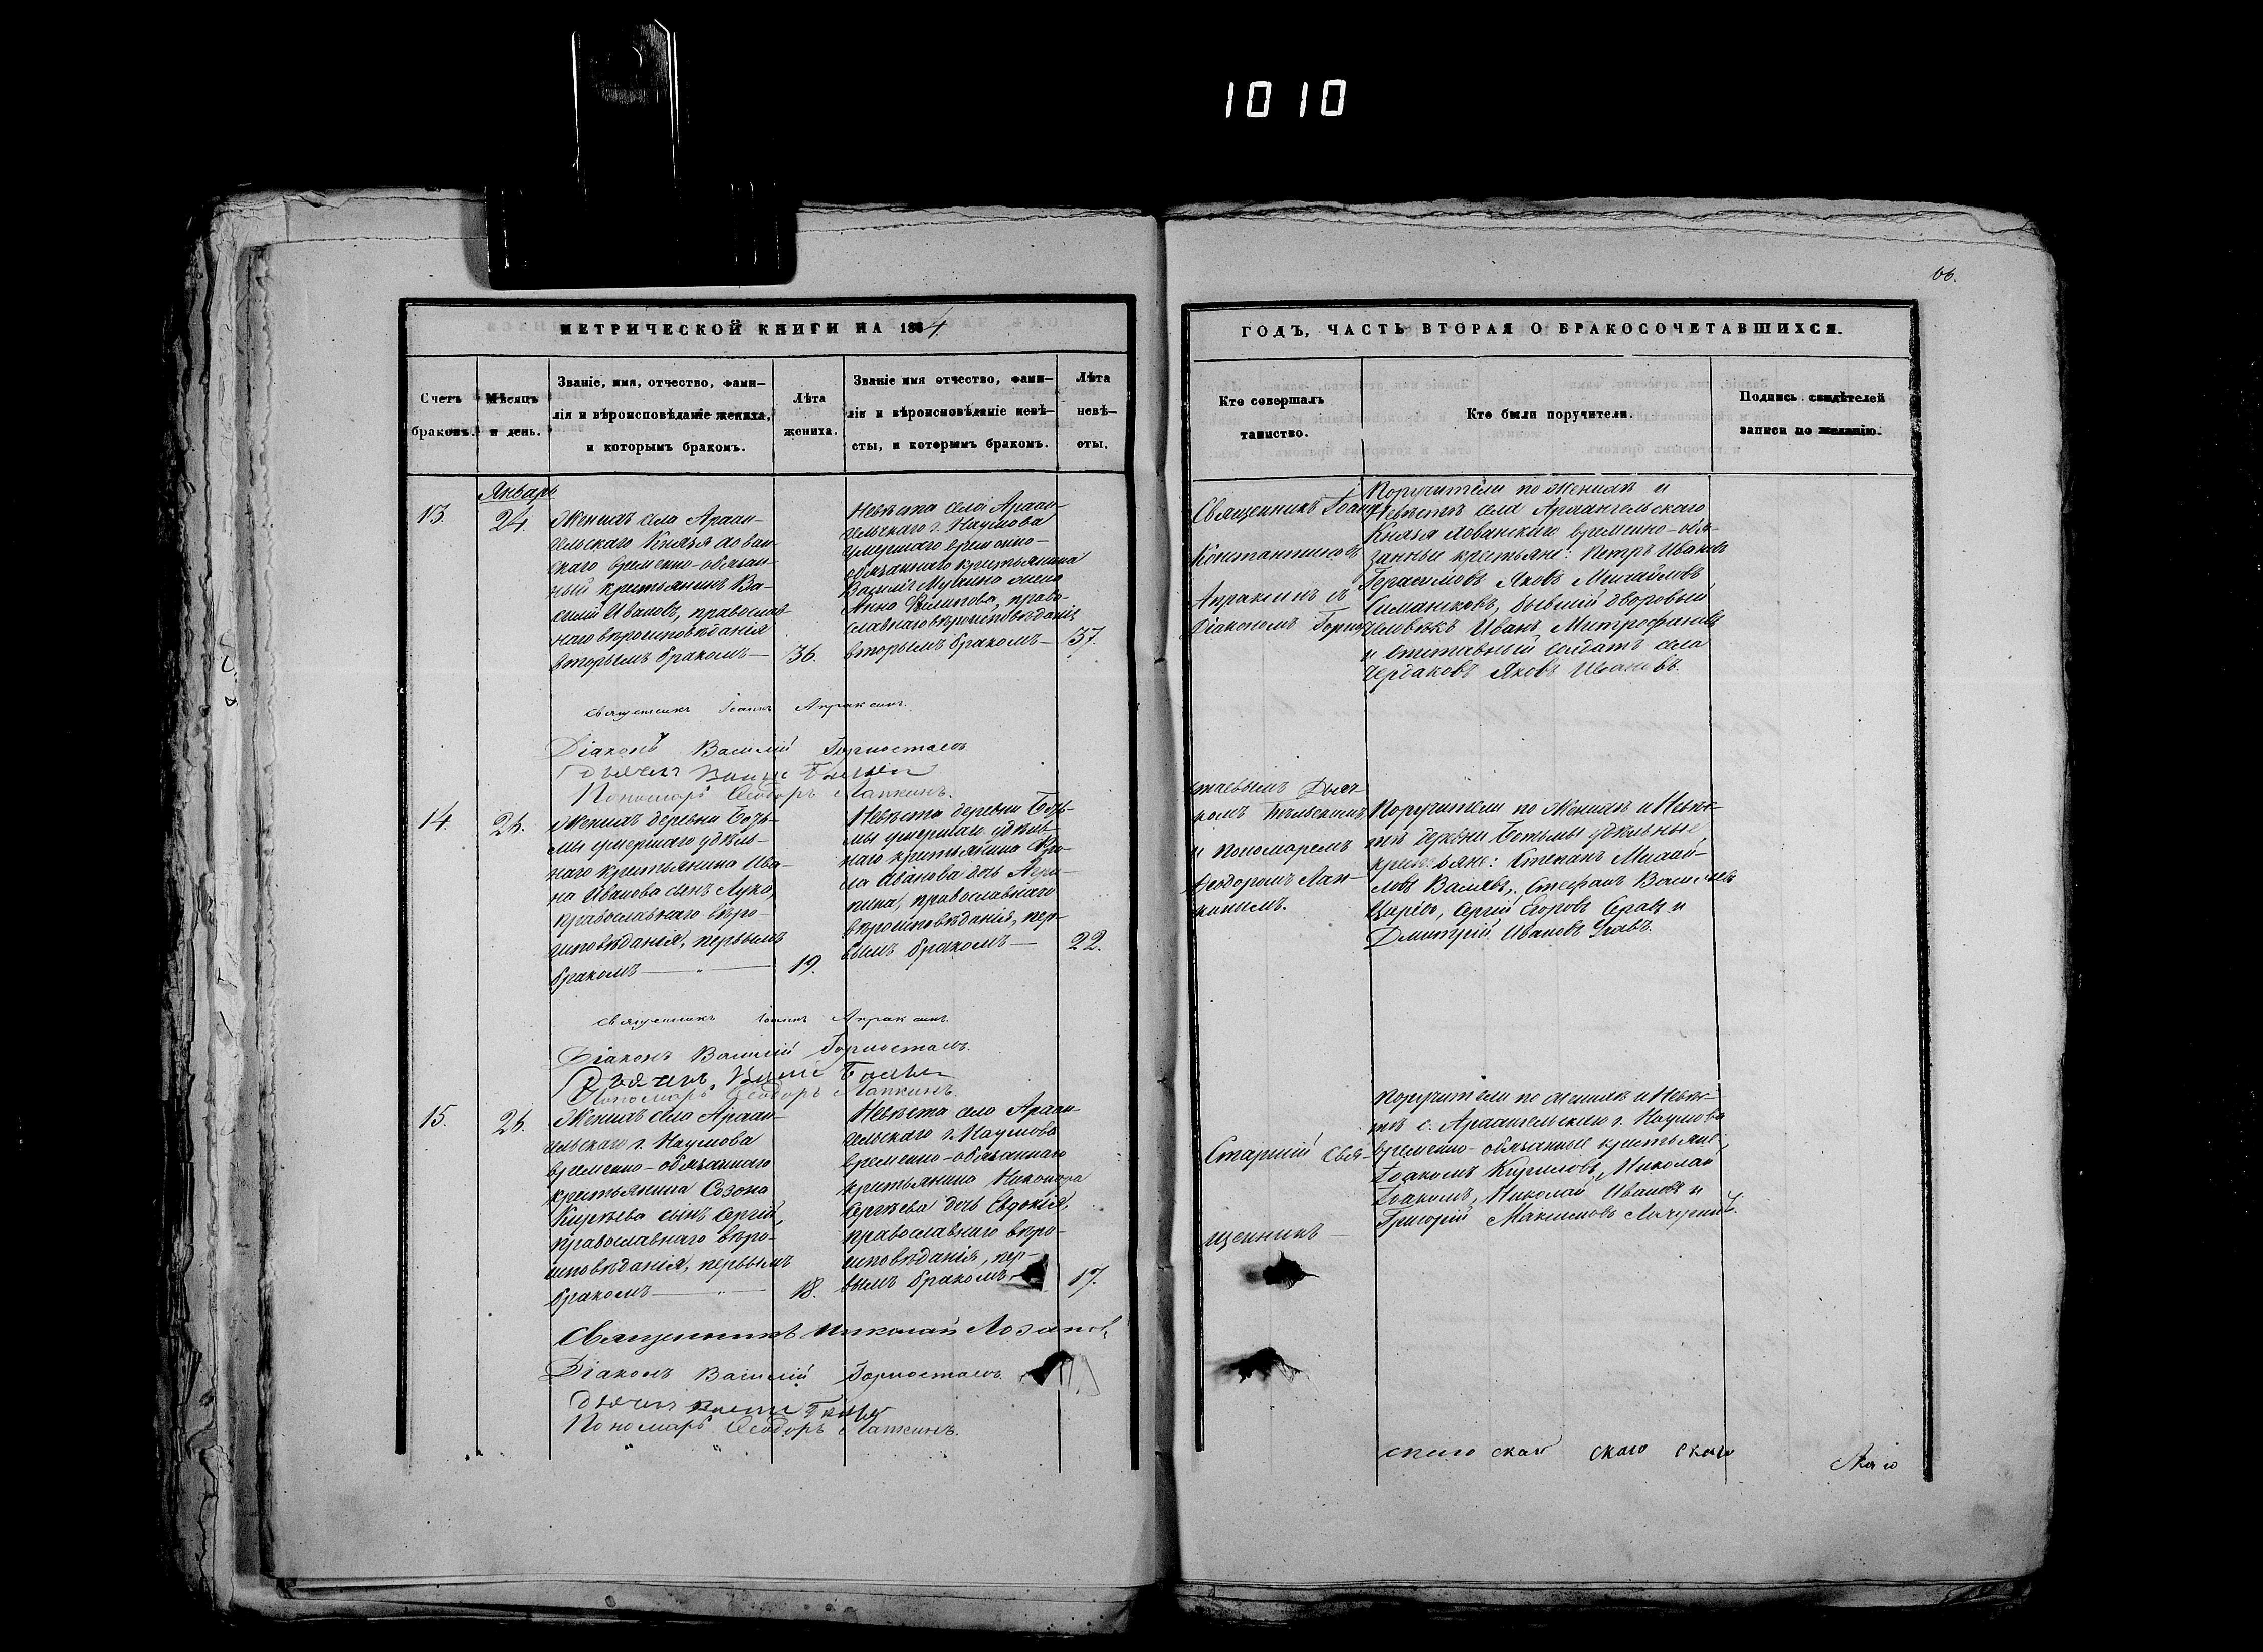 1010
66.
МЕТРИЧЕСКОЙ КНИГИ НА 1864
ГОДЪ, ЧАСТЬ ВТОРАЯ О БРАКОСОЧЕТАВШИХСЯ.
Счетъ
браковъ.
Мѣсяцъ
и день.
Званіе, имя, отчество, фами-
лія и вѣроисповѣданіе жениха,
и которымъ бракомъ.
Лѣта
жениха.
Званіе имя отчество, фами-
лія и вѣроисповѣданіе невѣ-
сты, и которымъ бракомъ.
Лѣта
невѣ-
сты.
Кто совершалъ
таинство.
Кто были поручители.
Подпись свидѣтелей
записи по желанію.
Январь
13.
24.
Женихъ села Архан-
гельскаго Князя Хован-
скаго временно-обязан-
ный крестьянинъ Ва-
силій Ивановъ, православ-
наго вѣроисповѣданія
вторымъ бракомъ —
36.
Невѣста села Архан-
гельскаго г. Наумова
умершаго временно-
обязаннаго крестьянина
Василія жена
Анна Филипова, право-
славнаго вѣроисповѣданія
вторымъ бракомъ —
37.
Священникъ Іоаннъ
Константиновъ
Апраксинъ съ
Діакономъ Горно-
Поручители по женихѣ и
Невѣстѣ села Архангельскаго
Князя Хованскаго временно-обя-
занные крестьяне: Петръ Ивановъ
Герасимовъ Яковъ Михайловъ
бывшій дворовый
человѣкъ Иванъ Митрофановъ
и отставный солдатъ села
Чердаковъ Яковъ Ивановъ.
Священникъ Іоаннъ Апраксинъ.
Діаконъ Василій Горностаевъ
Дьячекъ
Пономарь Ѳеодоръ Лапкинъ.
14.
26.
Женихъ деревни
мы умершаго удѣль-
наго крестьянина Ива-
на Иванова сынъ Лука,
православнаго вѣро-
исповѣданія, первымъ
бракомъ — " —
19.
Невѣста деревни
мы умершаго удѣль-
наго крестьянина
Иванова дочь Агри-
пина, православнаго
вѣроисповѣданія, пер-
вымъ бракомъ —
22.
стаевымъ Дьяч-
комъ
и Пономаремъ
Ѳеодоромъ Лап-
кинымъ.
Поручители по женихѣ и Невѣс-
тѣ деревни удѣльные
крестьяне: Степанъ Михай-
ловъ Стефанъ Васильевъ
Сергій Егоровъ и
Дмитрій Ивановъ
Священникъ Іоаннъ Апраксинъ.
Діаконъ Василій Горностаевъ.
Дьячекъ
Пономарь Ѳеодоръ Лапкинъ.
15.
26.
Женихъ села Архан-
гельскаго г. Наумова
временно-обязаннаго
крестьянина Созона
Кирѣева сынъ Сергій,
православнаго вѣро-
исповѣданія, первымъ
бракомъ — " —
18.
Невѣста села Архан-
гельскаго г. Наумова
временно-обязаннаго
крестьянина Никонора
Сергѣева дочь Евдокія,
православнаго вѣро-
исповѣданія, пер-
вымъ бракомъ —
17.
Старшій Свя-
щенникъ —
Поручители по женихѣ и Невѣс-
тѣ с. Архангельскаго г. Наумова
временно-обязанные крестьяне,
Іоакимъ Кириловъ, Николай
Іоакимъ, Николай Ивановъ и
Григорій Максимовъ
Священникъ Николай Лозановъ
Діаконъ Василій Горностаевъ
Дьячекъ
Пономарь Ѳеодоръ Лапкинъ.
скаго скаго скаго скаго
скаго